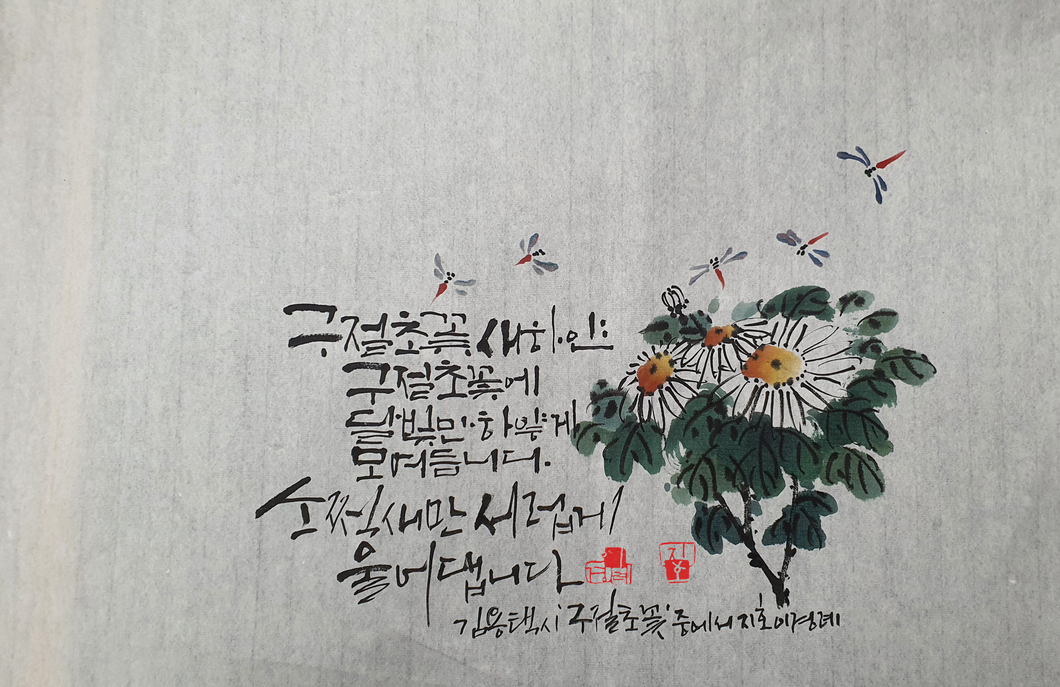 구절초꽃 새하얀
구절초꽃에
달빛만 하얗게
모여듭니다.
소쩍새만 서럽게
울어댑니다
지호
김용택시 '구절초꽃' 중에서 지호 이경례